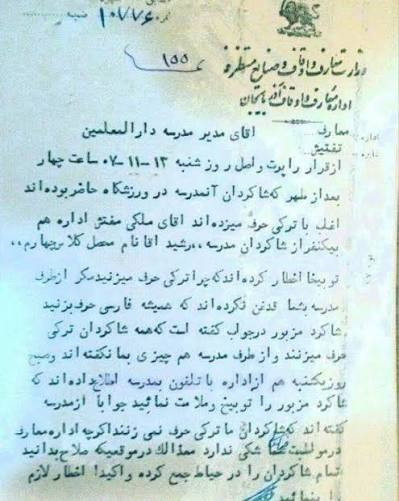 نمره ۱۰۷۷۶ ضمیمه
وزارت معارف و اوقاف و صنایع مستظرفه
۱۵۵
اداره معارف و اوقاف آذربایجان
اداره معارف آقای مدیر مدرسه دارالمعلمین
دایره تفتیش
از قرار راپرت واصل روز شنبه ۱۳-۱۱-۰۷ ساعت چهار
بعد از ظهر که شاگردان آنمدرسه در ورزشگاه حاضر بوده اند
اغلب با ترکی حرف میزده اند آقای ملکی مفتش اداره هم
بیکنفر از شاگردان مدرسه ،، رشید آقا نام محصل کلاس چهارم ،،
توبیخا اخطار کرده اند که چرا ترکی حرف میزنید مگر از طرف
مدرسه بشما قدغن نکرده اند که همیشه فارسی حرف بزنید
شاگرد مزبور در جواب گفته است که همه شاگردان ترکی
حرف میزنند و از طرف مدرسه هم چیزی بما نگفته اند و صبح
روز یکشنبه هم از اداره با تلفون بمدرسه اطلاع داده اند که
شاگرد مزبور را توبیخ و ملامت نمائید جوابا از مدرسه
گفته اند که شاگردان ما ترکی حرف نمی زنند اگرچه اداره معارف
در موفقیت شما شکی ندارد معذالک در موقعیکه صلاح بدانید
تمام شاگردان را در حیاط جمع کرده و اکیدا اخطار لازم
بنمائید